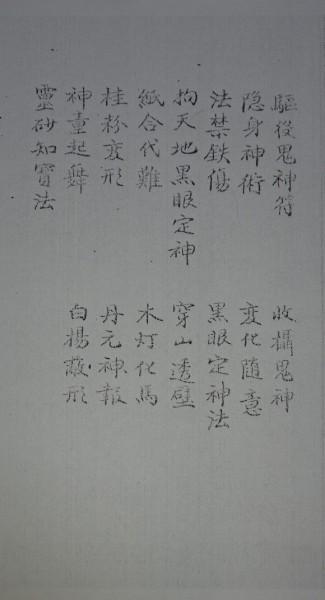 驅役鬼神符
收攝鬼神
隐身神術
变化隨意
法禁鉄傷
黑眼定神法
拘天地黑眼定神
穿山透壁
紙合代難
木灯化馬
桂粉变形
丹元神報
神童起舞
白楊蔽形
靈砂知寳法